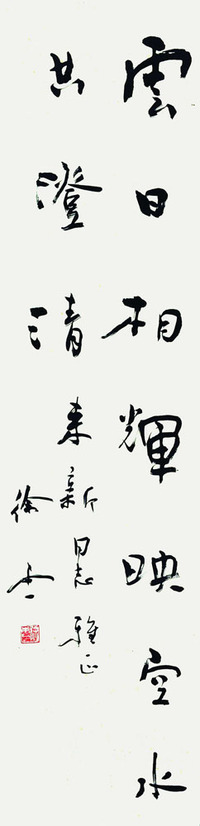 雲日相輝映空水
共澄清 来新同志雅正
徐本一